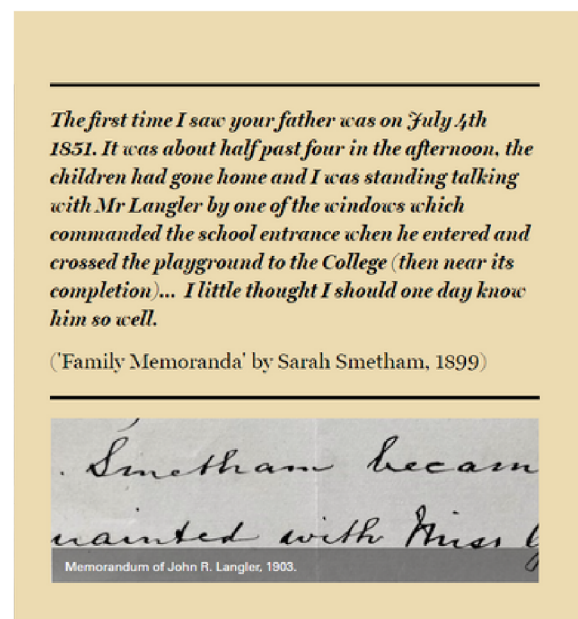 The first time I saw your father was on July 4th
1851. It was about half past four in the afternoon, the
children had gone home and I was standing talking
with Mr Langler by one of the windows which
commanded the school entrance when he entered and
crossed the playground to the College (then near its
completion)... I little thought I should one day know
him so well.
('Family Memoranda' by Sarah Smetham, 1899)
. Smetham becam
uainted with Miss G
Memorandum of John R. Langler, 1903.